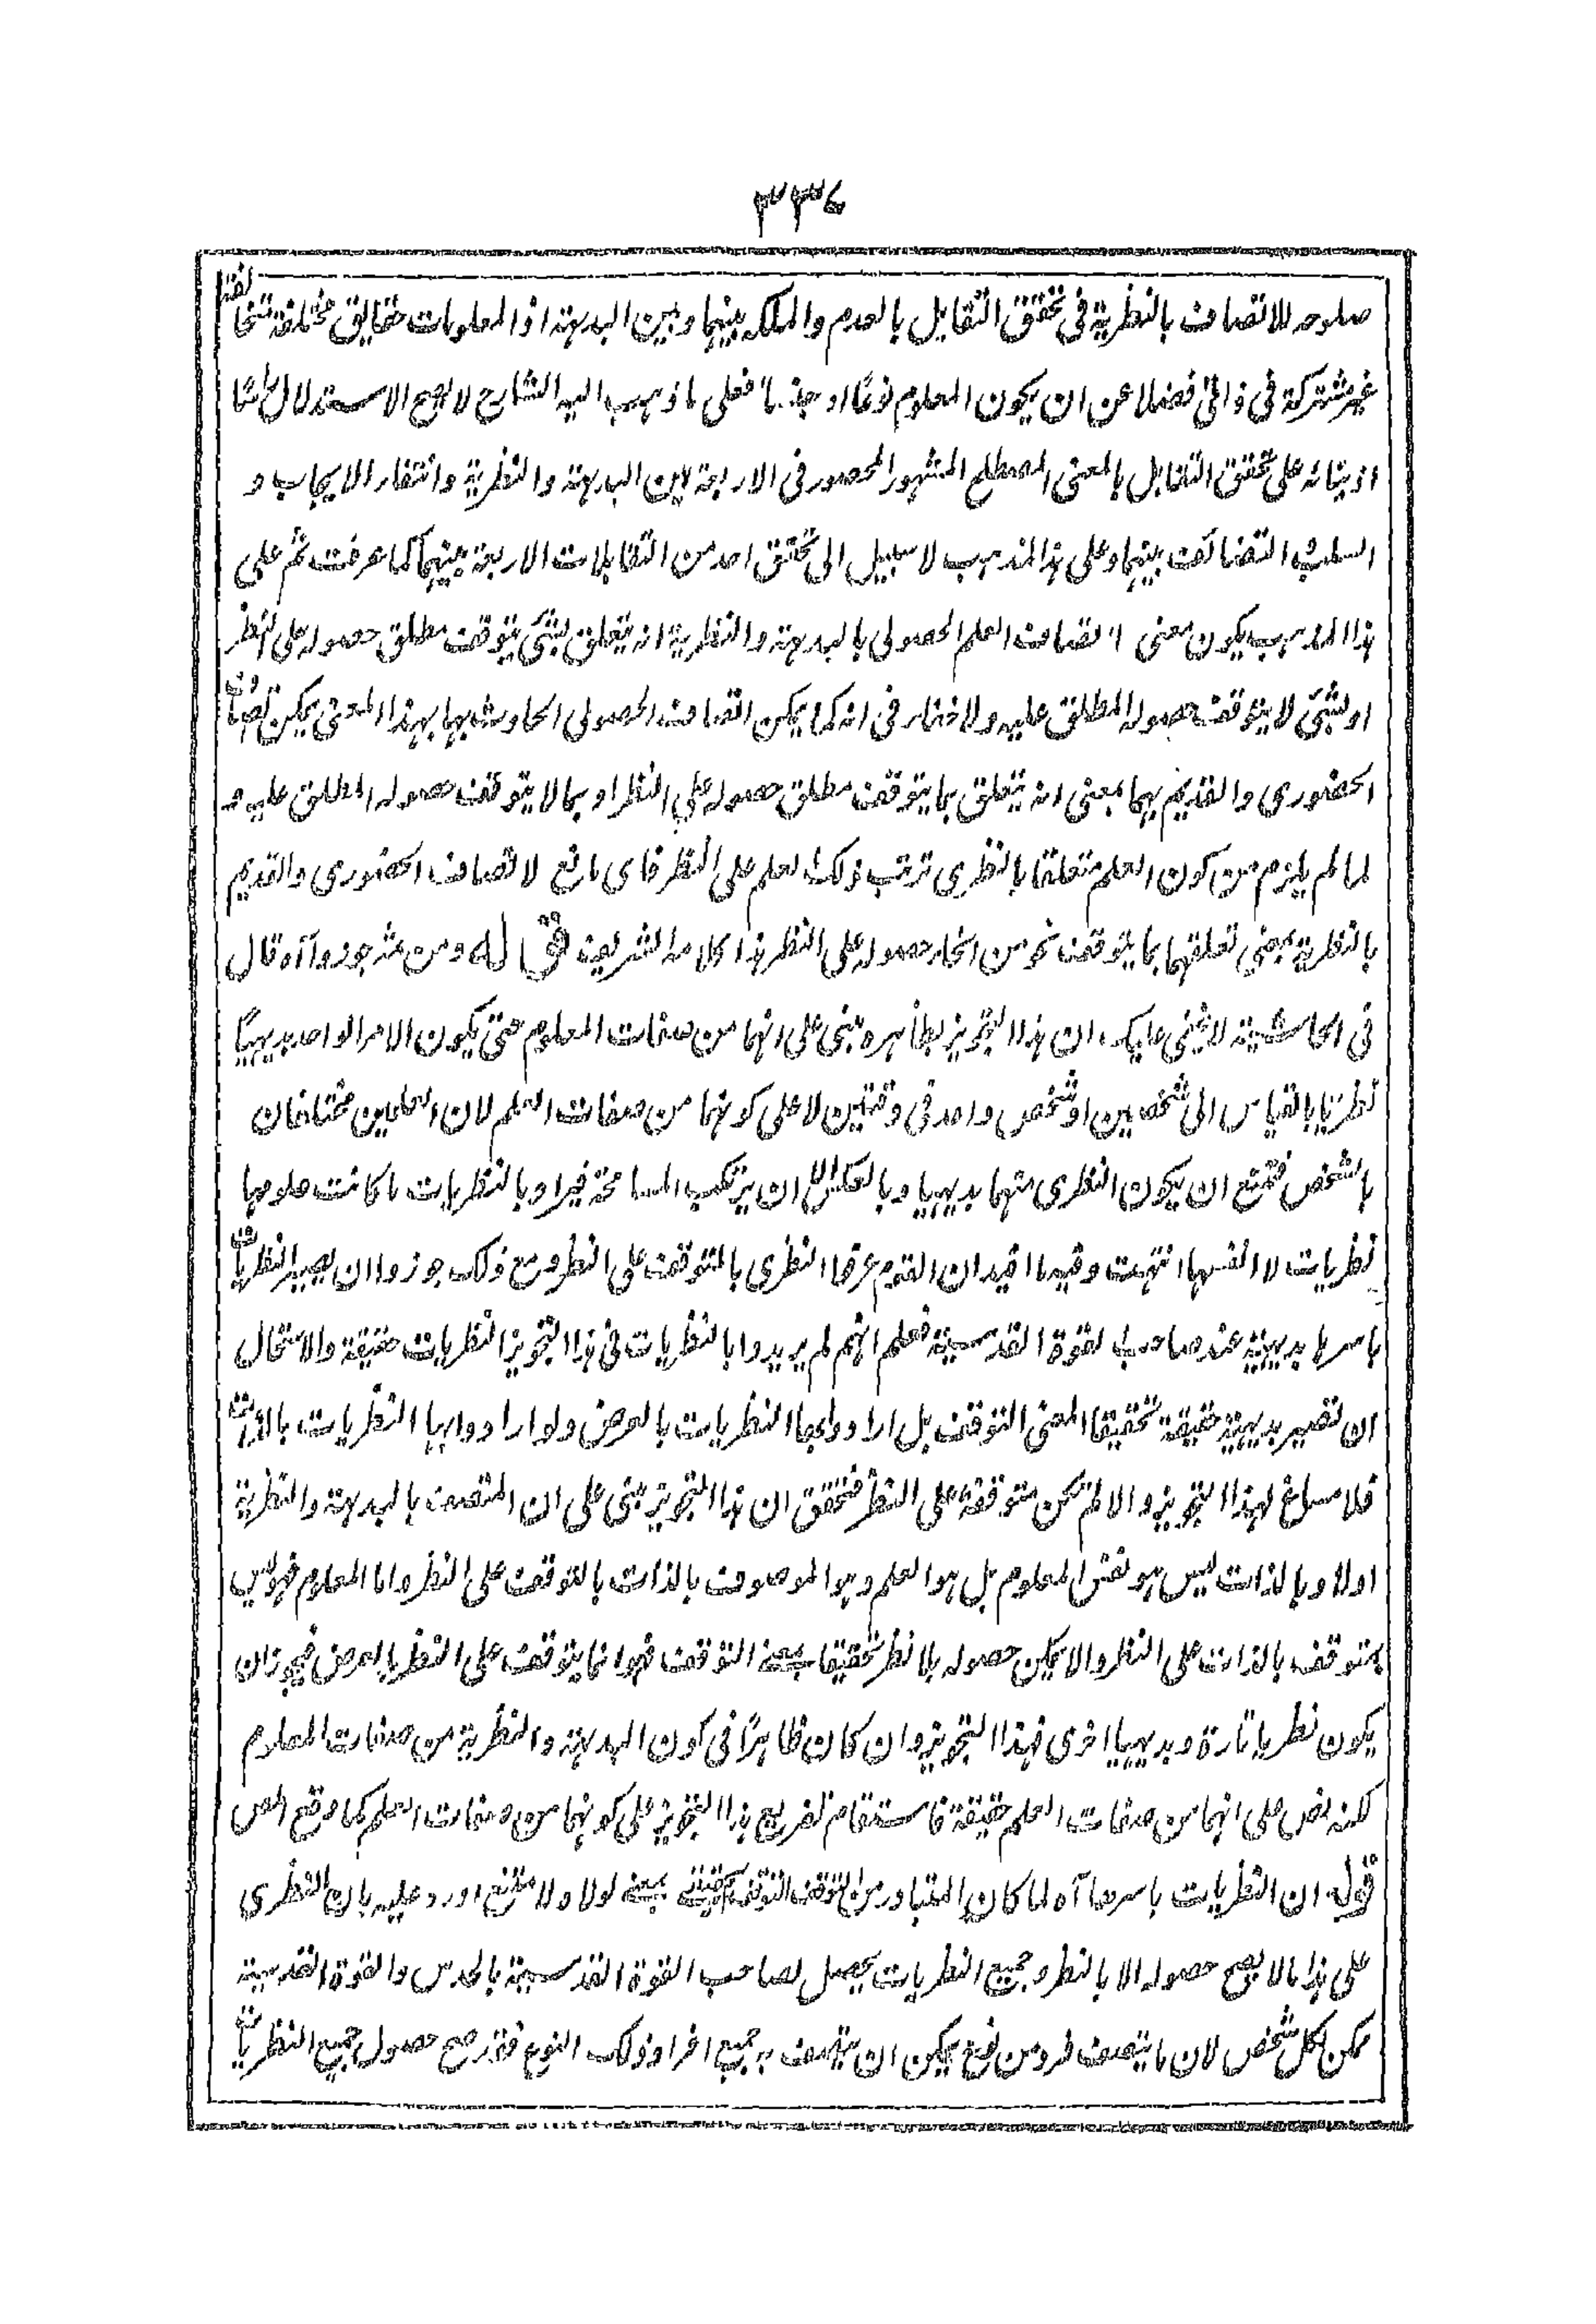 ٣٣٦
صلوحه للاتصاف بالنظرية في تحقق التقابل بالعدم والملكه بينهما وبين البداهة اذ المعلومات حقائق مختلفة متخالفة
غير مشتركة في ذاتي فضلا عن ان يكون المعلوم نوعًا او جنسًا فعلى ما ذهب اليه الشارح لا يصح الاستدلال
اذ بنائه على تحقق التقابل بالمعنى المصطلح المشهور المحصور في الاربعة بين البداهة والنظرية وانتفاء الايجاب و
السلب والتضائف بينهما وعلى هذا المذهب لا سبيل الى تحقق احد من التقابلات الاربعة بينهما كما عرفت ثم على
هذا المذهب يكون معنى اتصاف العلم الحصولي بالبداهة والنظرية انه يتعلق بشئ يتوقف مطلق حصوله على النظر
او بشئ لا يتوقف حصوله المطلق عليه ولا خفاء في انه كما يمكن اتصاف الحصولي الحادث بهما بهذا المعنى يمكن اتصاف
الحضوري والقديم بهما بمعنى انه يتعلق بما يتوقف مطلق حصوله على النظر او بما لا يتوقف حصوله المطلق عليه و
لما لم يلزم من كون العلم متعلقا بالنظري ترتب ذلك العلم على النظر فاى مانع لاتصاف الحضوري والقديم
بالنظرية بمعنى تعلقهما بما يتوقف نحو من انحاء حصوله على النظر هذا كلامه الشريف قوله ومن ثمه جوزوا آه قال
في الحاشية لا يخفى عليك ان هذا التجويز بظاهره مبنى على انهما من صفات المعلوم حتى يكون الامر الواحد بديهيًا
نظريًا بالقياس الى شخصين او شخص واحد في وقتين لا على كونهما من صفات العلم لان العلمين مختلفان
بالشخص فيمتنع ان يكون النظري منهما بديهيا وبالعكس الا ان يرتكب المسامحة فيراد بالنظريات ما كانت علومها
نظريات لا انفسها انتهت وفيه ما افيد ان القوم عرفوا النظري بالمتوقف على النظر ومع ذلك جوزوا ان يصير النظريات
باسرها بديهية عند صاحب القوة القدسية فعلم انهم لم يريدوا بالنظريات في هذا التجويز النظريات حقيقة والا استحال
ان تصير بديهية حقيقة تحقيقا لمعنى التوقف بل ارادوا بها النظريات بالعرض ولو ارادوا بها النظريات بالذات
فلا مساغ لهذا التجويز والا لم تكن متوقفة على النظر فتحقق ان هذا التجويز مبنى على ان المتصف بالبداهة والنظرية
اولا وبالذات ليس هو نفس المعلوم بل هو العلم وهو الموصوف بالذات بالتوقف على النظر واما المعلوم فهو ليس
بمتوقف بالذات على النظر والا لا يمكن حصوله بلا نظر تحقيقا بمعنى التوقف فهو انما يتوقف على النظر بالعرض فيجوز ان
يكون نظريا تارة وبديهيا اخرى فهذا التجويز وان كان ظاهرًا في كون البداهة والنظرية من صفات المعلوم
لكنه نص على انهما من صفات العلم حقيقة فاستقام تفريع هذا التجويز على كونهما من صفات العلم كما وقع المص
قوله ان النظريات باسرها آه لما كان المتبادر من التوقف التوقف الحقيقي بمعنى لولاه لامتنع اورد عليه بان النظري
على هذا ما لا يصح حصوله الا بالنظر وجميع النظريات يحصل لصاحب القوة القدسية بالحدس والقوة القدسية
ممكن لكل شخص لان ما يتصف فرد من نوع يمكن ان يتصف به جميع افراد ذلك النوع فقد صح حصول جميع النظريات